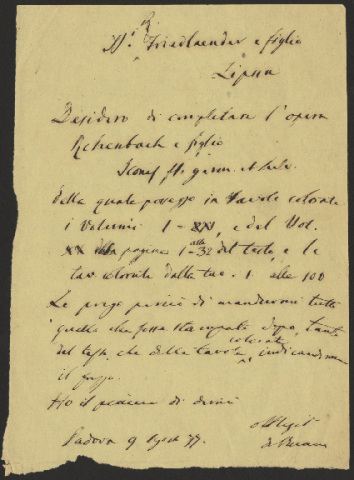 Friedlaender e figlio
Lipsia
Desidero di completare l'opera
Reichenbach e figlio
Icones fl. germ. et helv.
della quale posseggo in tavole colorate
i Volumi I - XXI, e del Vol.
XX dalla pagina 1 alla 32 del testo, e le
tav. colorate dalla tav. 1 alle 100
La prego perciò di mandarmi tutto
quello che fossa stampato dopo, tanto
del testo, che delle tavole colorate, indicandomene
il prezzo.
Ho il piacere di dirmi
Padova 9 Agosto 77.
Obbligat